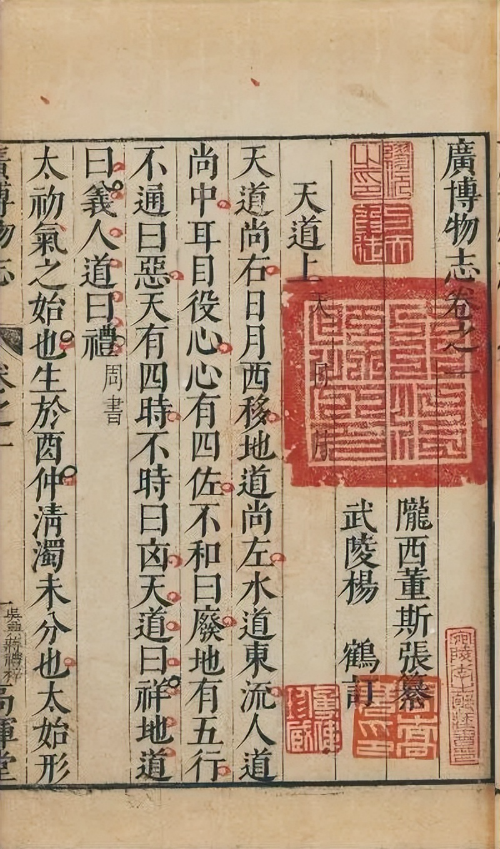 廣博物志卷之一
隴西董斯張纂
武陵楊 鶴訂
天道上 天 日 月
天道尚右日月西移地道尚左水道東流人道
尚中耳目役心心有四佐不和曰廢地有五行
不通曰惡天有四時不時曰㐫天道曰祥地道
曰義人道曰禮 周書
太初氣之始也生於酉仲淸濁未分也太始形
廣博物志 卷之一 一 高暉堂